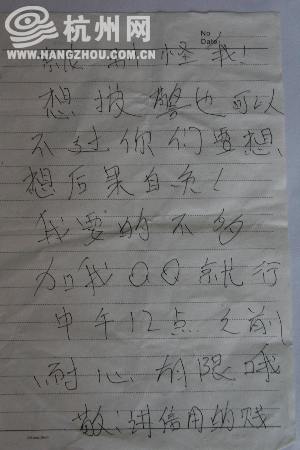 杭州网
WWW.HANGZHOU.COM.CN
No
Date
别怪我！
想报警也可以
不过你们要想
想后果自负！
我要的不多
加我QQ就行
中午12点之前
耐心有限哦
敬：讲信用的贱